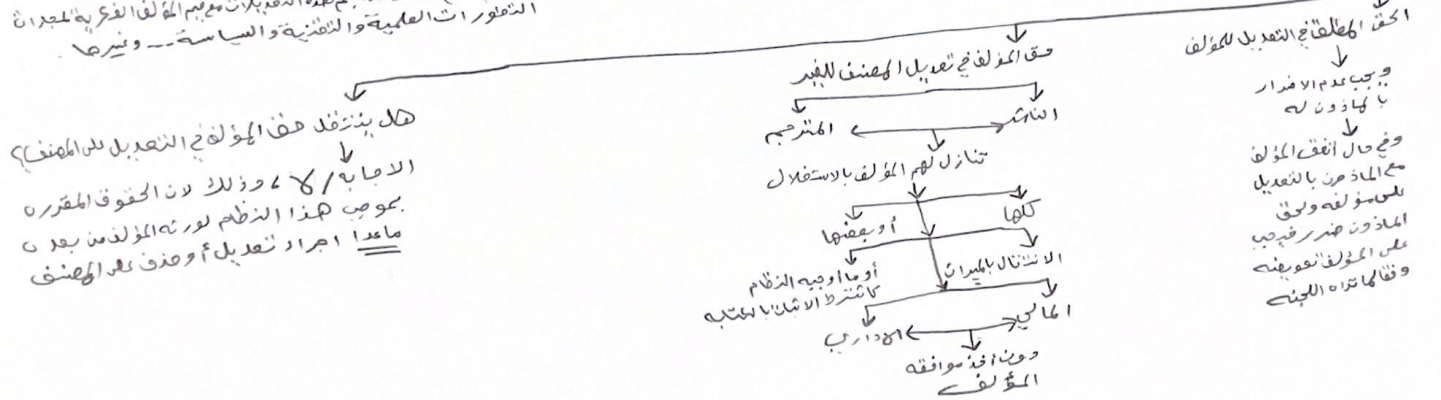 التطورات العلمية والتقنية والسياسة --- وغيرها.
الحق المطلق في التعديل للمؤلف
ويجب عدم الاضرار
بالماذون له
وفي حال اتفق المؤلف
مع الماذون بالتعديل
على مؤلفه ولحق
الماذون ضرر فيجب
على المؤلف تعويضه
وفقا لما تراه اللجنه
حق المؤلف في تعديل المصنف للغير
الناشر
المترجم
تنازل لهم المؤلف بالاستغلال
كلها
أو بعضها
الانتقال بالميراث
أو ما أوجبه النظام
كاشتراط الاثبات بالكتابه
المالي
الاداري
دون أخذ موافقه
المؤلف
هل ينتقل حق المؤلف في التعديل على المصنف؟
الاجابه / لا ، وذلك لان الحقوق المقرره
بموجب هذا النظام لورثه المؤلف من بعده
ماعدا اجراء تعديل أو حذف على المصنف